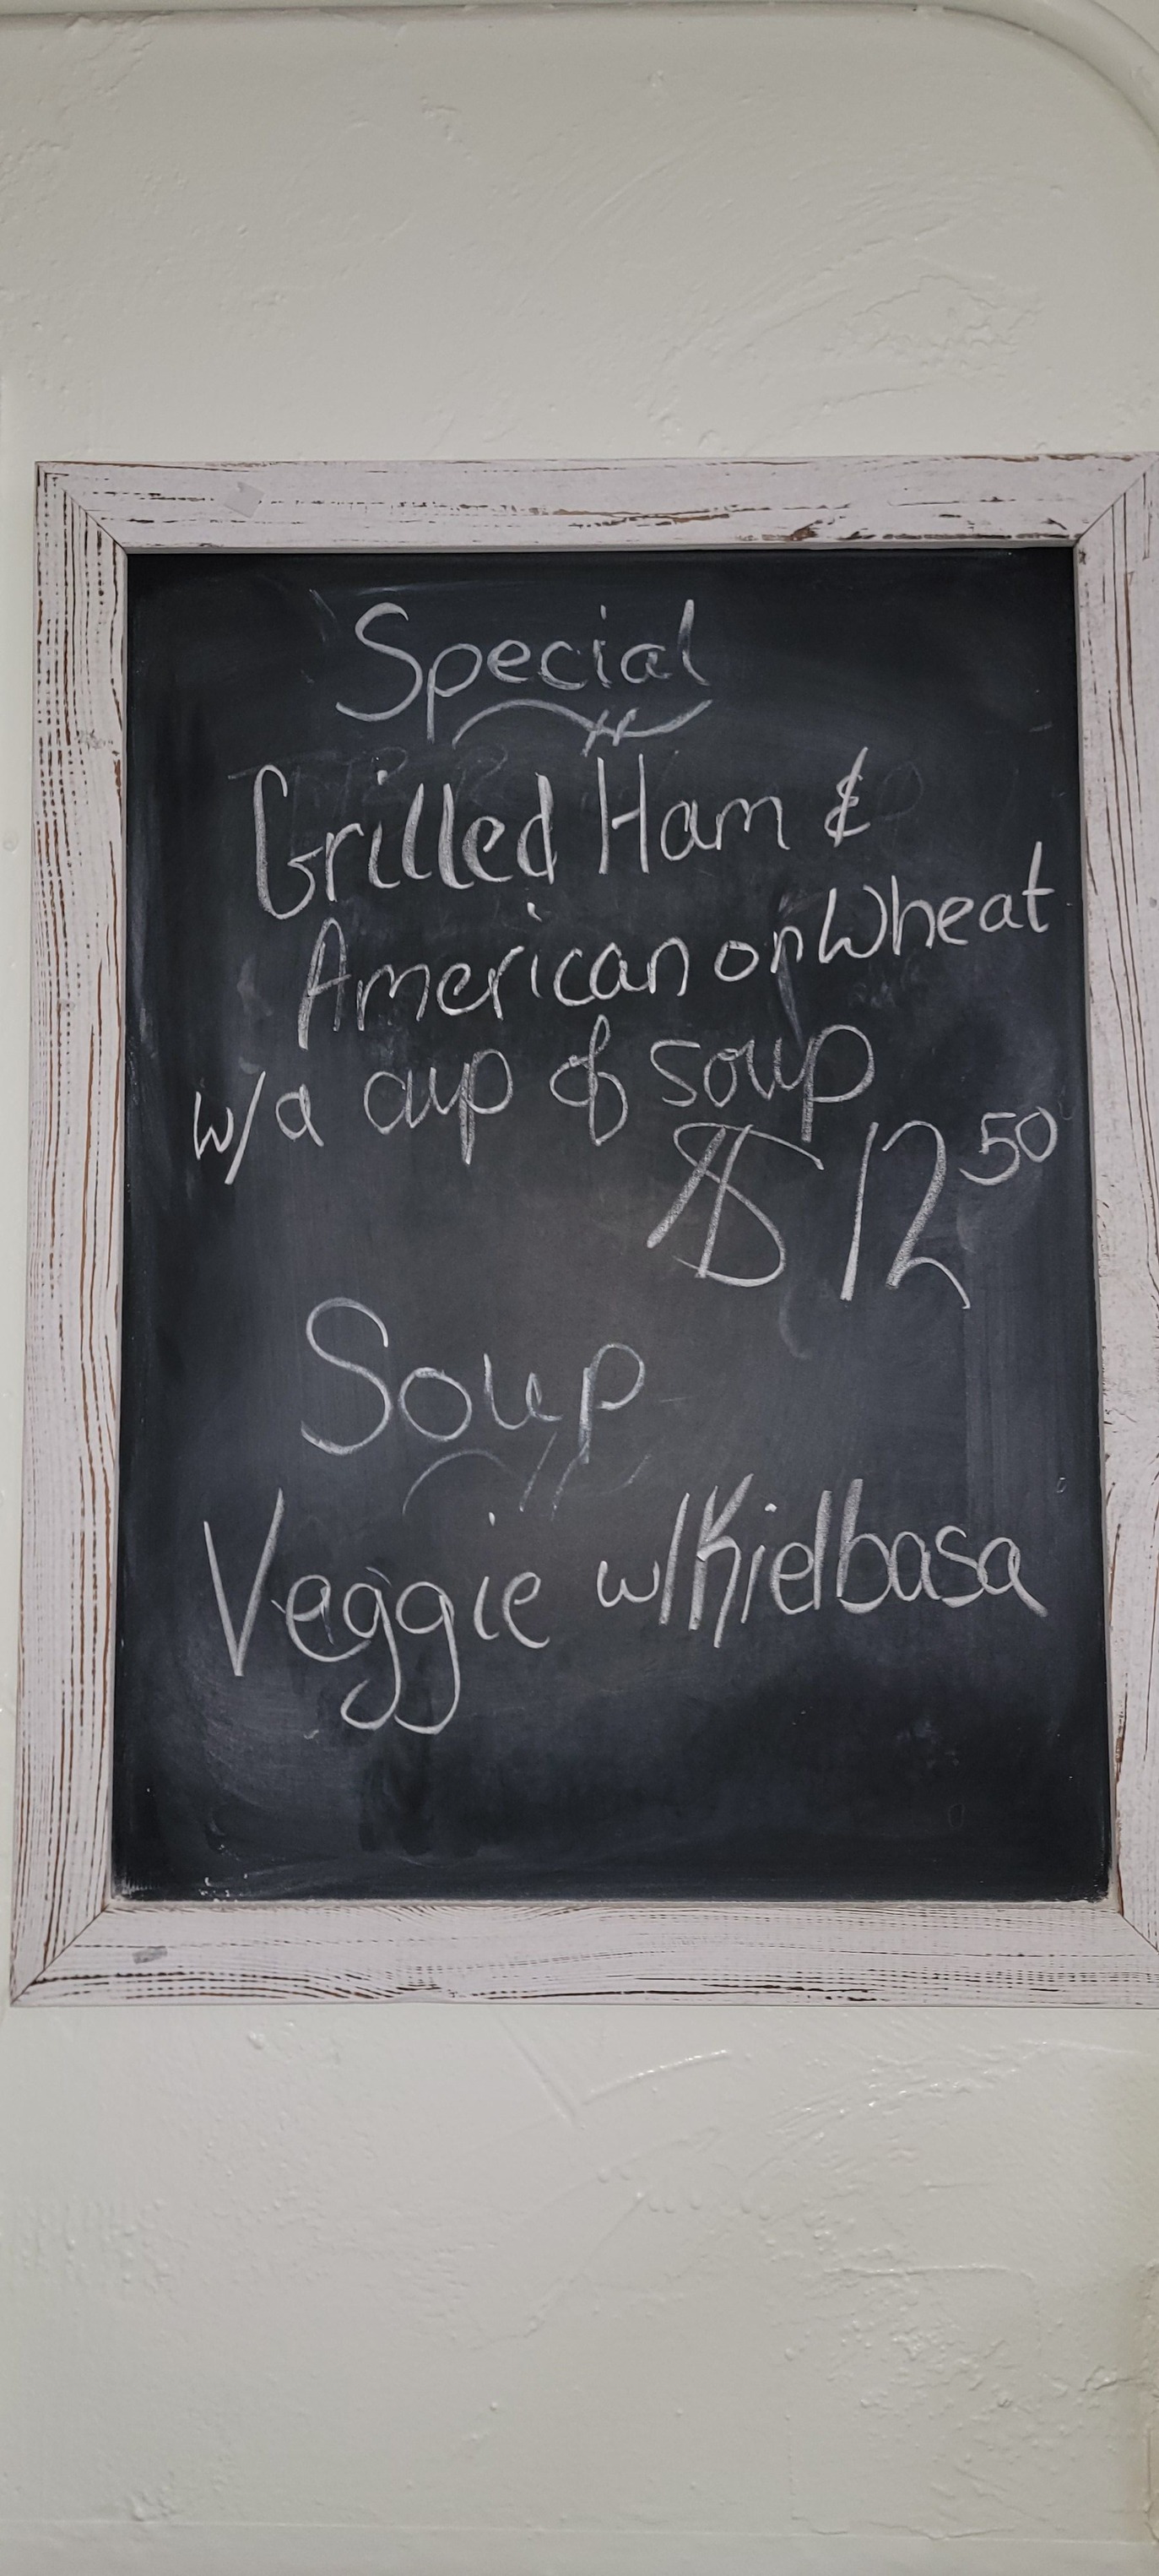 Special
Grilled Ham &
American on Wheat
w/a cup of soup
$12.50
Soup
Veggie w/Kielbasa